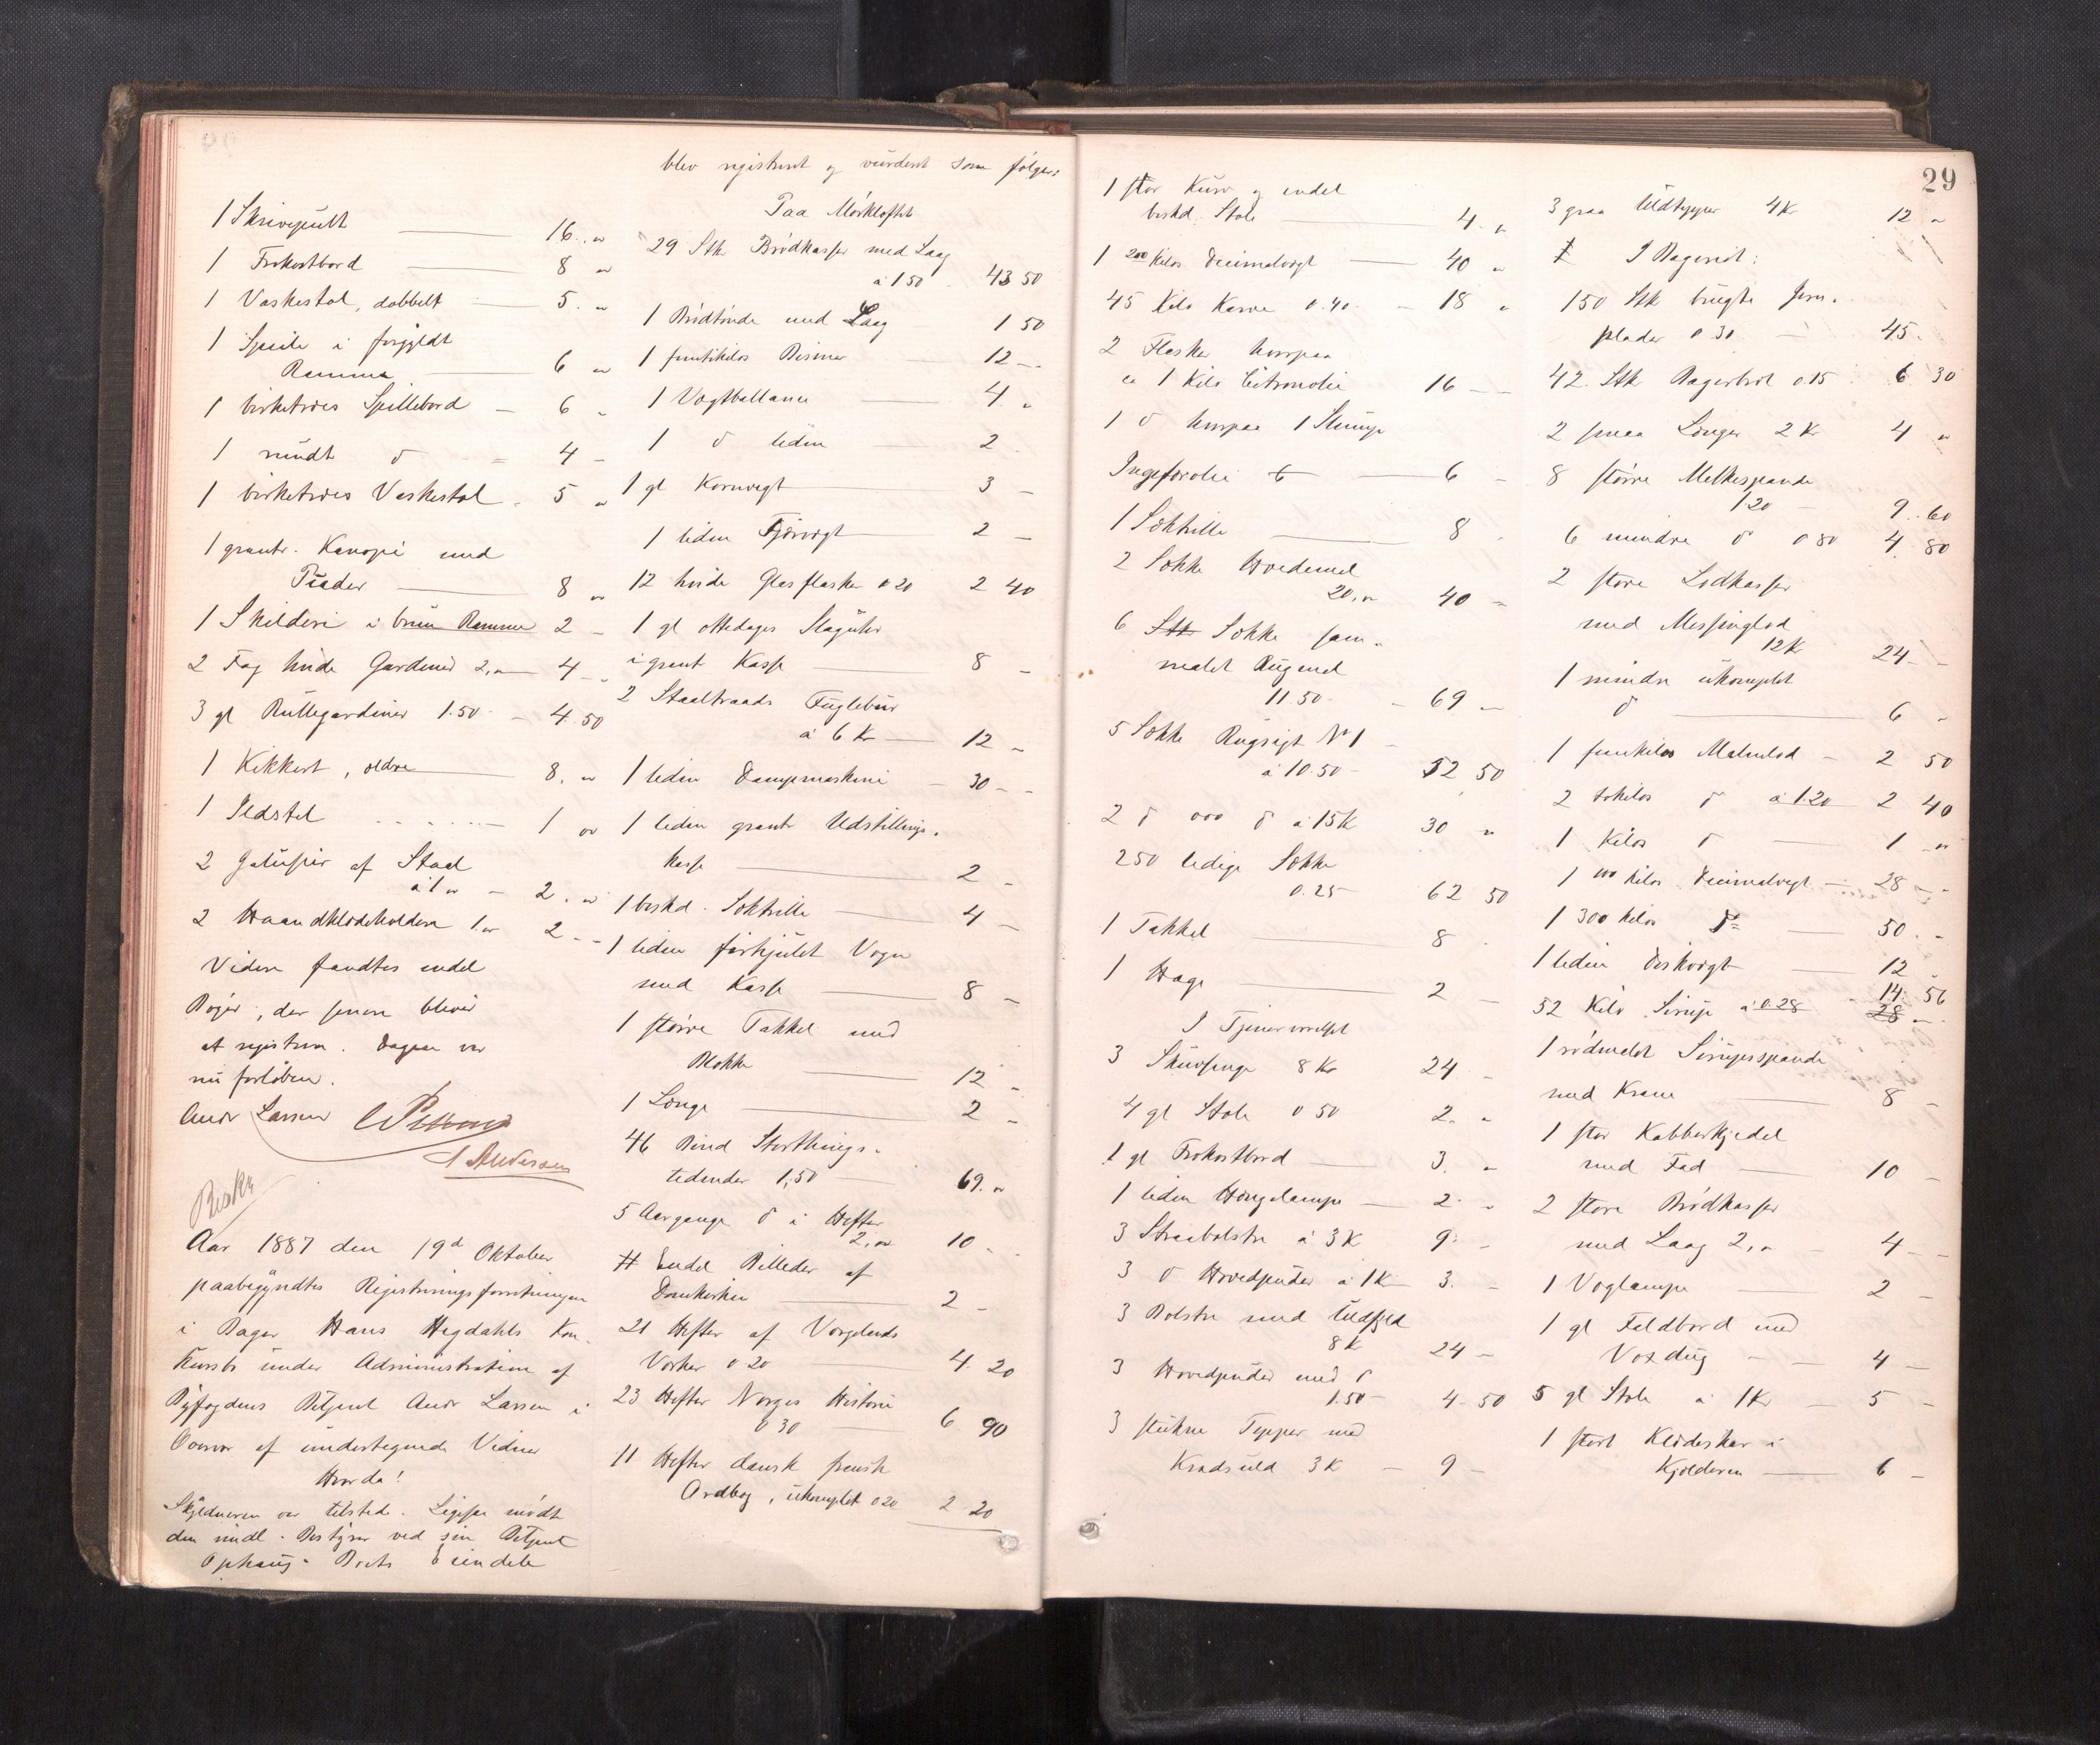 1 Skrivepult 16 „
1 Frokostbord 8 „
1 Vaskestol, dobbelt 5. „
1 Speile i forgyldt
Ramme 6 „
1 birketræes Spillebord 6 „
1 rundt do 4 -
1 birketræes Vaskestol 5 „
1 grantr. Kanapé med
Puder 8 „
1 Skilderi i brun Ramme 2 -
2 Fag hvide Gardiner 2,- 4 -
3 gl Rullegardiner 1.50 - 4.50
1 Kikkert, ældre 8. „
1 Ildstel 1 „
2 Jalusier af Staal
à 1 „ - 2. „
2 Haandklædeholdere 1 „ 2 -
Videre fandtes endel
Bøger, der senere bliver
at registrere. Dagen var
nu forløben.
Andr Larsen
A Andersen
Aar 1887 den 19d Oktober
paabegyndtes Registreringsforretningen
i Bager Hans Hegdahls Kon-
kursbo under Administration af
Byfogdens Betjent Andr Larsen i
Overvær af undertegnede Vidner
Hvorda!
Skyldneren var tilstede. Ligesaa mødt
den midl. Bestyrer ved sin Betjent
Ophaug. Boets Eiendele
blev registreret og vurderet som følger:
Paa Mørkloftet
29 Stk Brødkasser med Laag
à 1.50 43 50
1 Brødtønde med Laag 1 50
1 femtikilos Bismer 12 -
1 Vægtballance 4. „
1 do liden 2
1 gl Kornvægt 3 -
1 liden Fjærvægt 2 -
12 hvide Glasflasker 0 20 2 40
1 gl ottedages Slaguhr
i grant Kasse 8 -
2 Staaltraads Fuglebur
à 6 Kr 12 „
1 liden Dampmaskine - 30 -
1 liden grantr Udstillings-
kasse 2 -
1 beskd. Sæktrille 4 -
1 liden firhjulet Vogn
med Kasse 8 -
1 større Takkel med
Blokke 12 „
1 Længe 2 -
46 Bind Storthings-
tidender 1,50 69. „
5 Aargange do i Hefter
2, „ 10 -
Endel Billeder af
Domkirken 2 -
21 Hefter af Vorgelands
Værker 0 20 4. 20
23 Hefter Norges Historie
0 30 6 90
11 Hefter dansk fransk
Ordbog, ukomplet 0 20 2 20
29
1 stor Kurv og endel
beskd. Stole 4. „
1 200 kilos Decimalvægt 40 „
45 Kilo Karve 0.40 - 18 „
2 Flasker hvorpaa
ca 1 Kilo Citronolie 16 -
1 do hvorpaa 1 Slump
Ingeførolie 6 -
1 Sæktrille 8
2 Sække Hvedemel
20, „ 40 -
6 Stk Sække sam-
malet Rugmel
11.50 - 69 -
5 Sække Rugsigt No 1
à 10.50 - 52 50
2 do 000 do à 15K 30 „
250 ledige Sække
0.25 62 50
1 Takkel 8
1 Hage 2 -
I Tjenerværelset
3 Skuvsenge 8 Kr 24 -
4 gl Stole 0 50 2. „
1 gl Frokostbord 3. „
1 liden Hængelampe 2 „
3 Straabolstre à 3K 9 -
3 do Hovedpuder à 1K 3. -
3 Bolstre med Uldfyld
8K 24 -
3 Hovedpuder med do
1.50 - 4.50
3 stukne Tepper med
Kradsuld 3K - 9 -
3 graa Uldtepper 4K 12 „
I Bageriet:
150 Stk brugte Jern-
plader 0 30 45.
42 Stk Bagerbræt 0.15 6 30
2 smaa Længer 2 Kr 4 „
8 større Melkespande
1.20 - 9. 60
6 mindre do 0 80 4. 80
2 store Lodkasser
med Messinglod
12K 24 -
1 mindre ukomplet
do 6 -
1 femkilos Malmlod - 2 50
2 tokilos do à 1.20 2 40
1 kilos do 1 „
1 100 kilos Decimalvægt - 28 -
1 300 kilos do 50. -
1 liden Diskvægt 12 -
52 Kilo Sirup à 0.28 14. 56
28 -
1 rødmalet Sirupsspande
med Krane 8 -
1 stor Kobberkjedel
med Fad 10 -
2 store Brødkasser
med Laag 2, „ 4 -
1 Væglampe 2 -
1 gl Foldbord med
Voxdug - 4 -
5 gl Stole à 1Kr - 5 -
1 stort Klædeskar i
Kjælderen 6 -